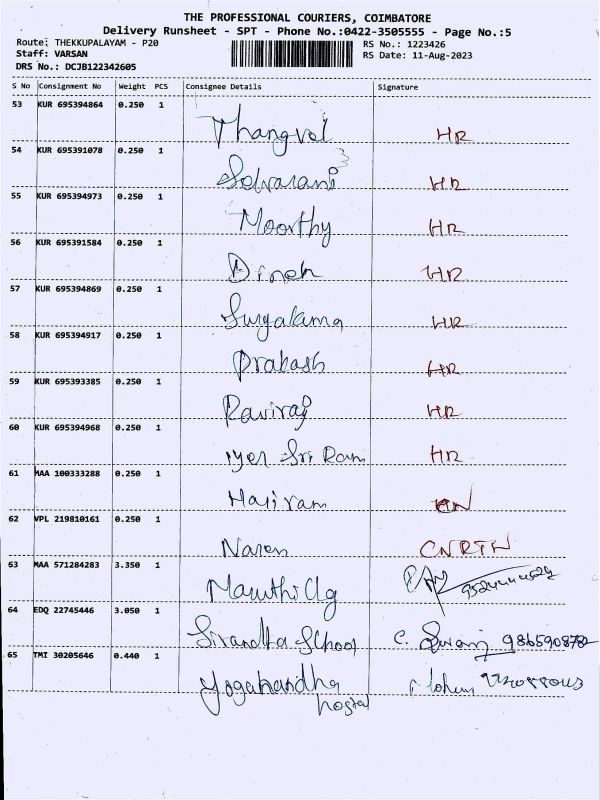 THE PROFESSIONAL COURIERS, COIMBATORE
Delivery Runsheet - SPT - Phone No.:0422-3505555 - Page No.:5
Route: THEKKUPALAYAM - P20 RS No.: 1223426
Staff: VARSAN RS Date: 11-Aug-2023
DRS No.: DCJB122342605
S No Consignment No Weight PCS Consignee Details Signature
53 KUR 695394864 0.250 1 Thangvel HR
54 KUR 695391078 0.250 1 Selvarani HR
55 KUR 695394973 0.250 1 Moorthy HR
56 KUR 695391584 0.250 1 Dinesh HR
57 KUR 695394869 0.250 1 HR
58 KUR 695394917 0.250 1 Prakash HR
59 KUR 695393385 0.250 1 Raviraj HR
60 KUR 695394968 0.250 1 Iyer Sri Ram HR
61 MAA 100333288 0.250 1 Hariram
62 VPL 219810161 0.250 1 Naren CNRTN
63 MAA 571284283 3.350 1 Maruthi Clg
64 EDQ 22745446 3.050 1 School C.
65 TMI 30205646 0.440 1